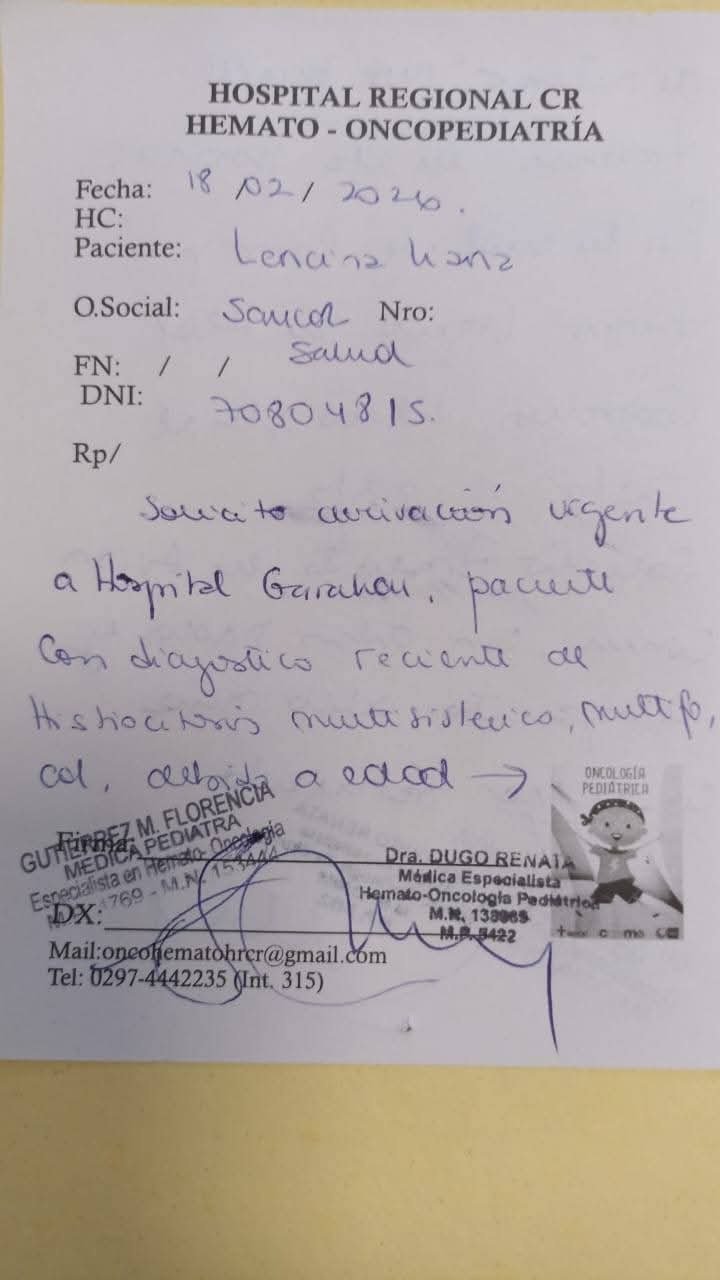 HOSPITAL REGIONAL CR
HEMATO - ONCOPEDIATRÍA
Fecha: 18 /02/ 2026.
HC:
Paciente: Lencina
O.Social: Nro:
Salud
FN: / /
DNI: 70804815.
Rp/
Solicito derivación urgente
a Hospital Garrahan, paciente
con diagnostico reciente de
Histiocitosis multisistemico, multifo,
cal, debido a edad →
ONCOLOGÍA
PEDIÁTRICA
GUTIERREZ M. FLORENCIA
MEDICA PEDIATRA
Especialista en Hemato-Oncología
4769 - M.N. 153444
Firma:
Dra. DUGO RENATA
Médica Especialista
Hemato-Oncología Pediátrica
M.N.
M.P. 5422
DX:
Mail:oncohematohrcr@gmail.com
Tel: 0297-4442235 (Int. 315)